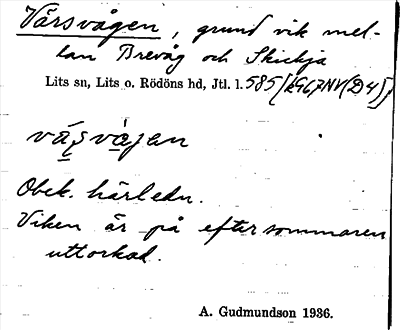 Vårsvågen, grund vik mel-
lan Brevåg och Skickja
Lits sn, Lits o. Rödöns hd, Jtl. l. 585 [19G7NV(D4)]
vå̱s̱vå̱jen
Obek. härledn.
Viken är på eftersommaren
uttorkad.
A. Gudmundson 1936.